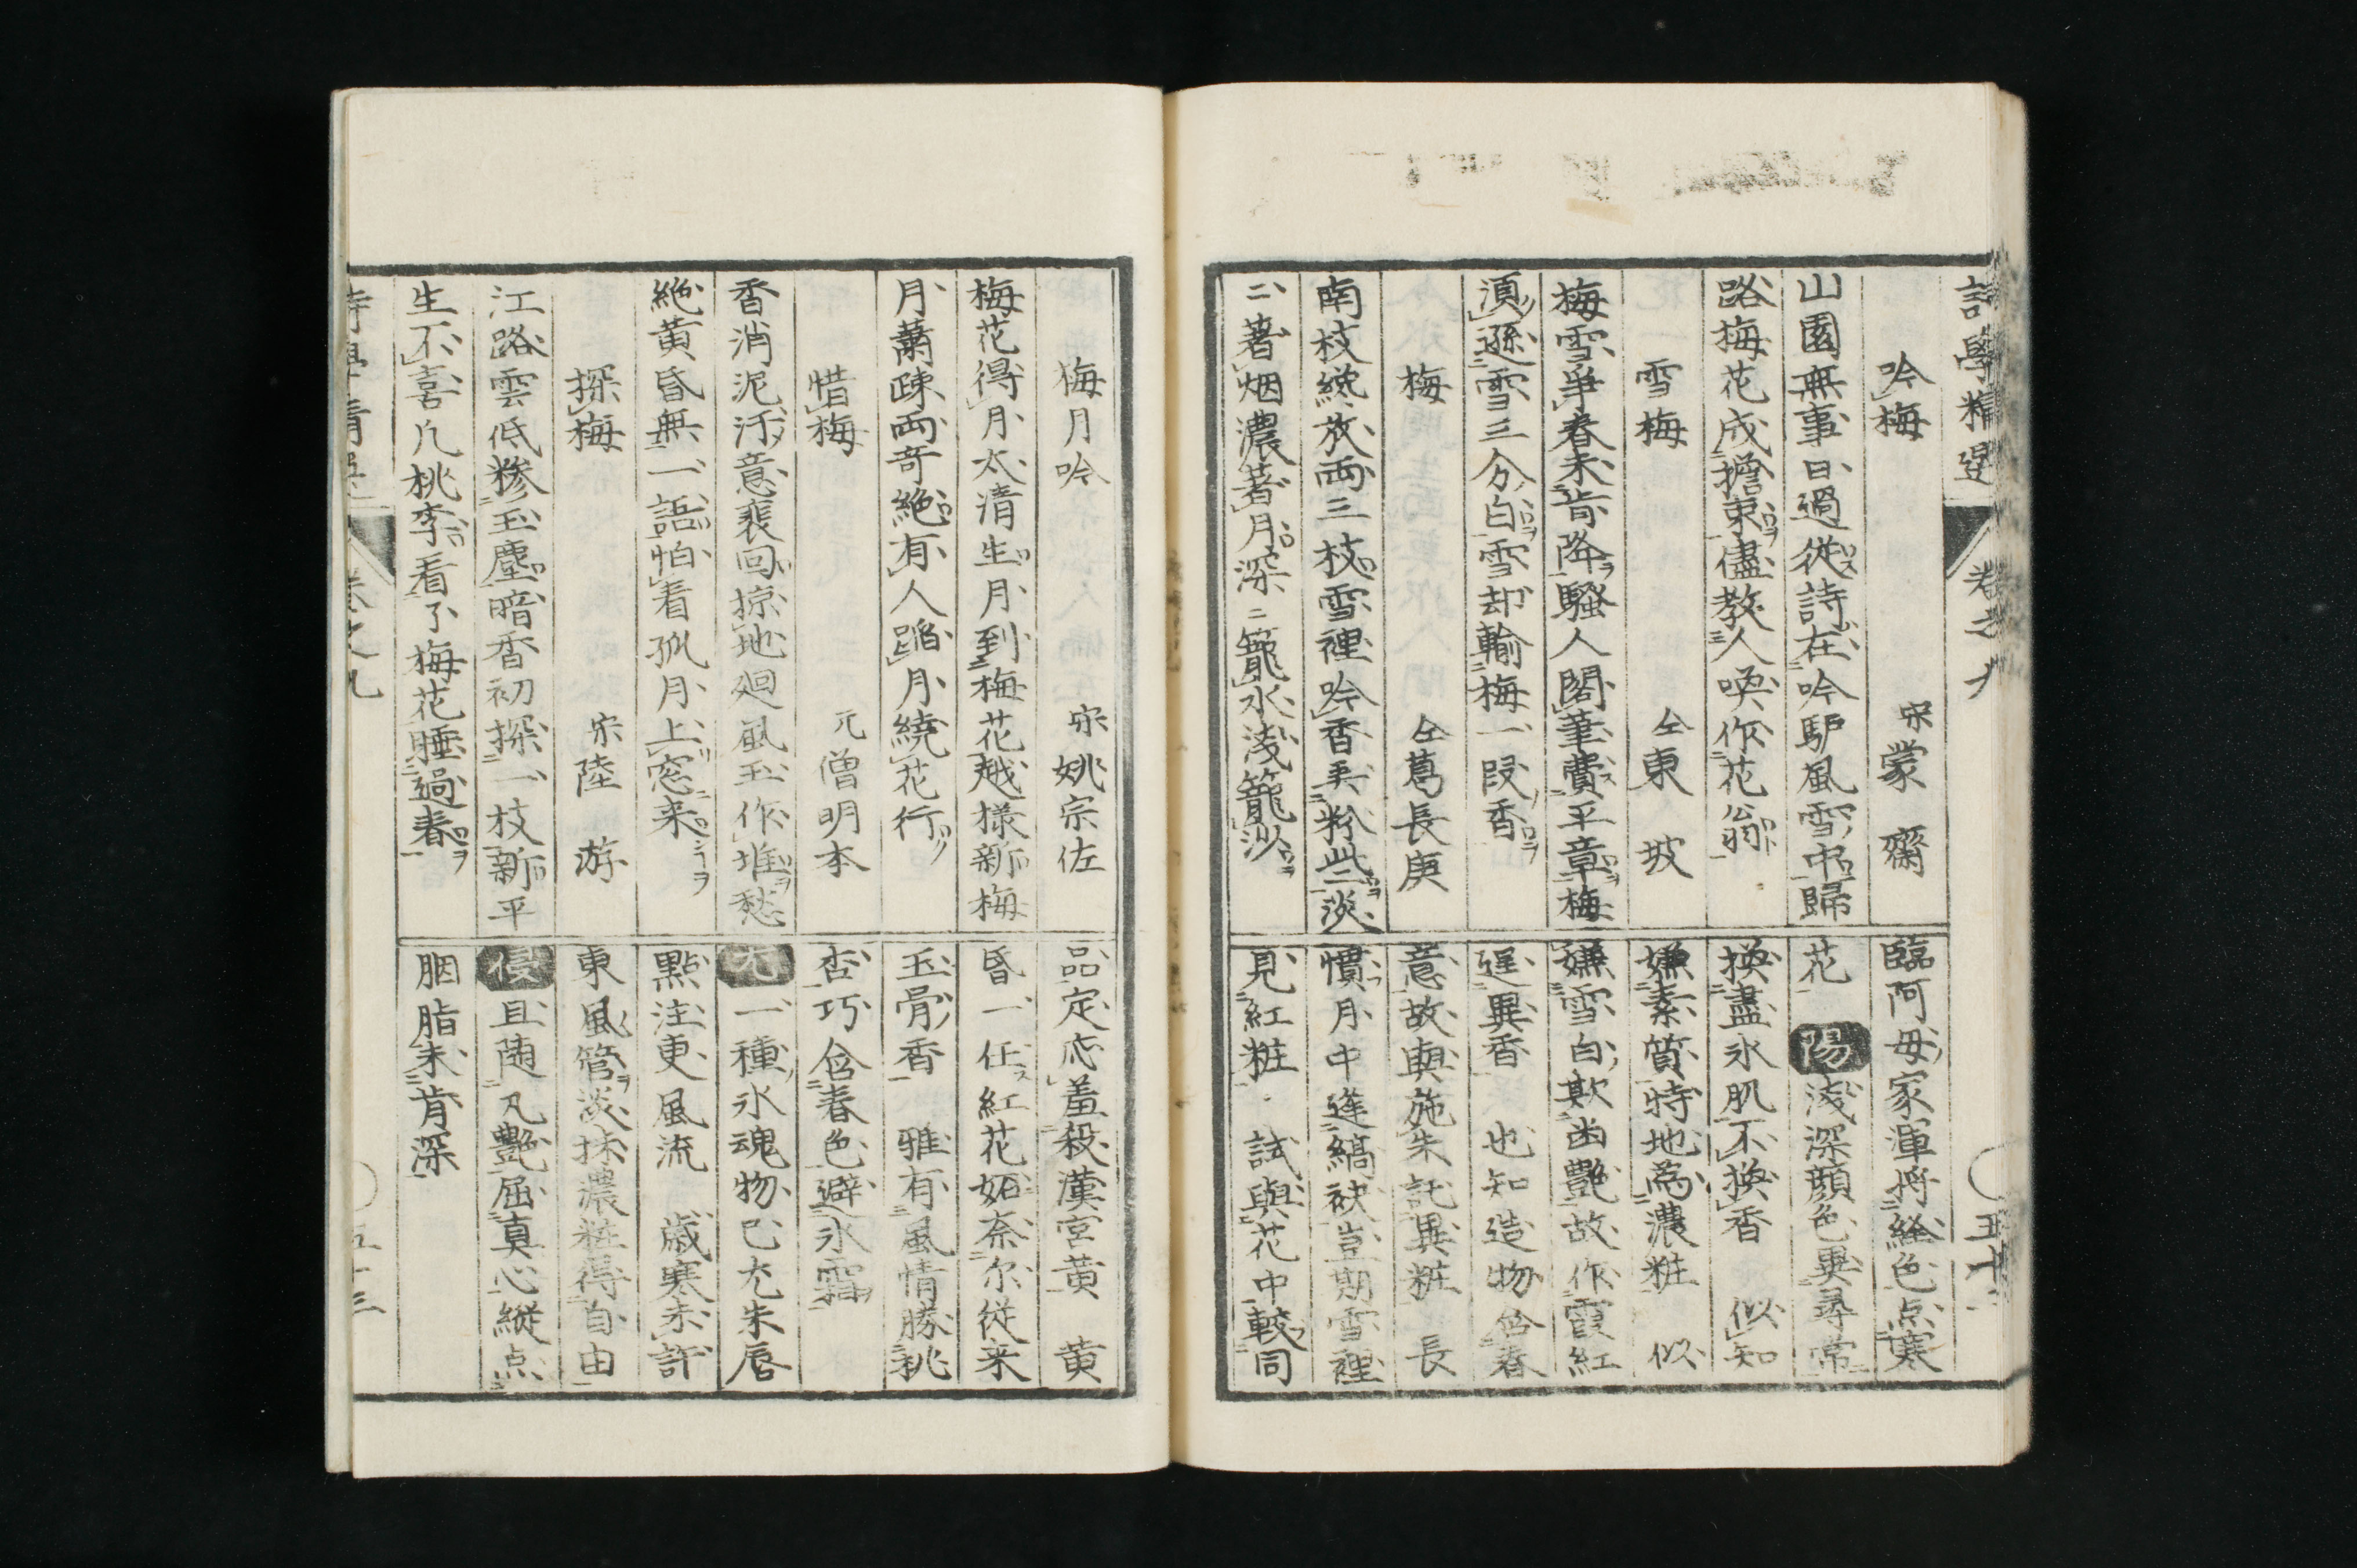 吟梅　宋蒙齋
山園無事日過從詩在吟驢風雪中歸
路梅花成擔束儘教人喚作花翁
雪梅　仝東坡
梅雪爭春未肯降騷人閣筆費平章梅
須遜雪三分白雪却輸梅一段香
梅　仝葛長庚
南枝纔放兩三枝雪裡吟香弄粉些淡
二著烟濃著月深二籠水淺籠沙
臨阿母家渾將絳色点寒
花　陽淺深顔色異尋常
換盡氷肌不換香　似知
嫌素質特地為濃粧　似
嫌雪白欺凶艶故作霞紅
逞異香　也知造物含春
意故與施朱託異粧　長
慣月中逢縞袂豈期雪裡
見紅粧　試與花中較同
梅月吟　宋姚宗佐
梅花得月太清生月到梅花越樣新梅
月蕭疎兩奇絶有人蹈月繞花行
惜梅　元僧明本
香消泥汚意裴回掠地廻風玉作堆愁
絶黄昏無一語怕看孤月上窓来
探梅　宋陸游
江路雲低糝玉塵暗香初探一枝新平
生不喜凡桃李看了梅花睡過春
品定応羞殺漢宮黄　黄
昏一任紅花妬奈尓從来
玉骨香　雅有風情勝桃
杏巧含春色避氷霜
尤一種氷魂物已尤朱唇
點注更風流　歳寒未許
東風管淡抹濃粧得自由
侵且随凡艶屈真心縦点
胭脂未肯深